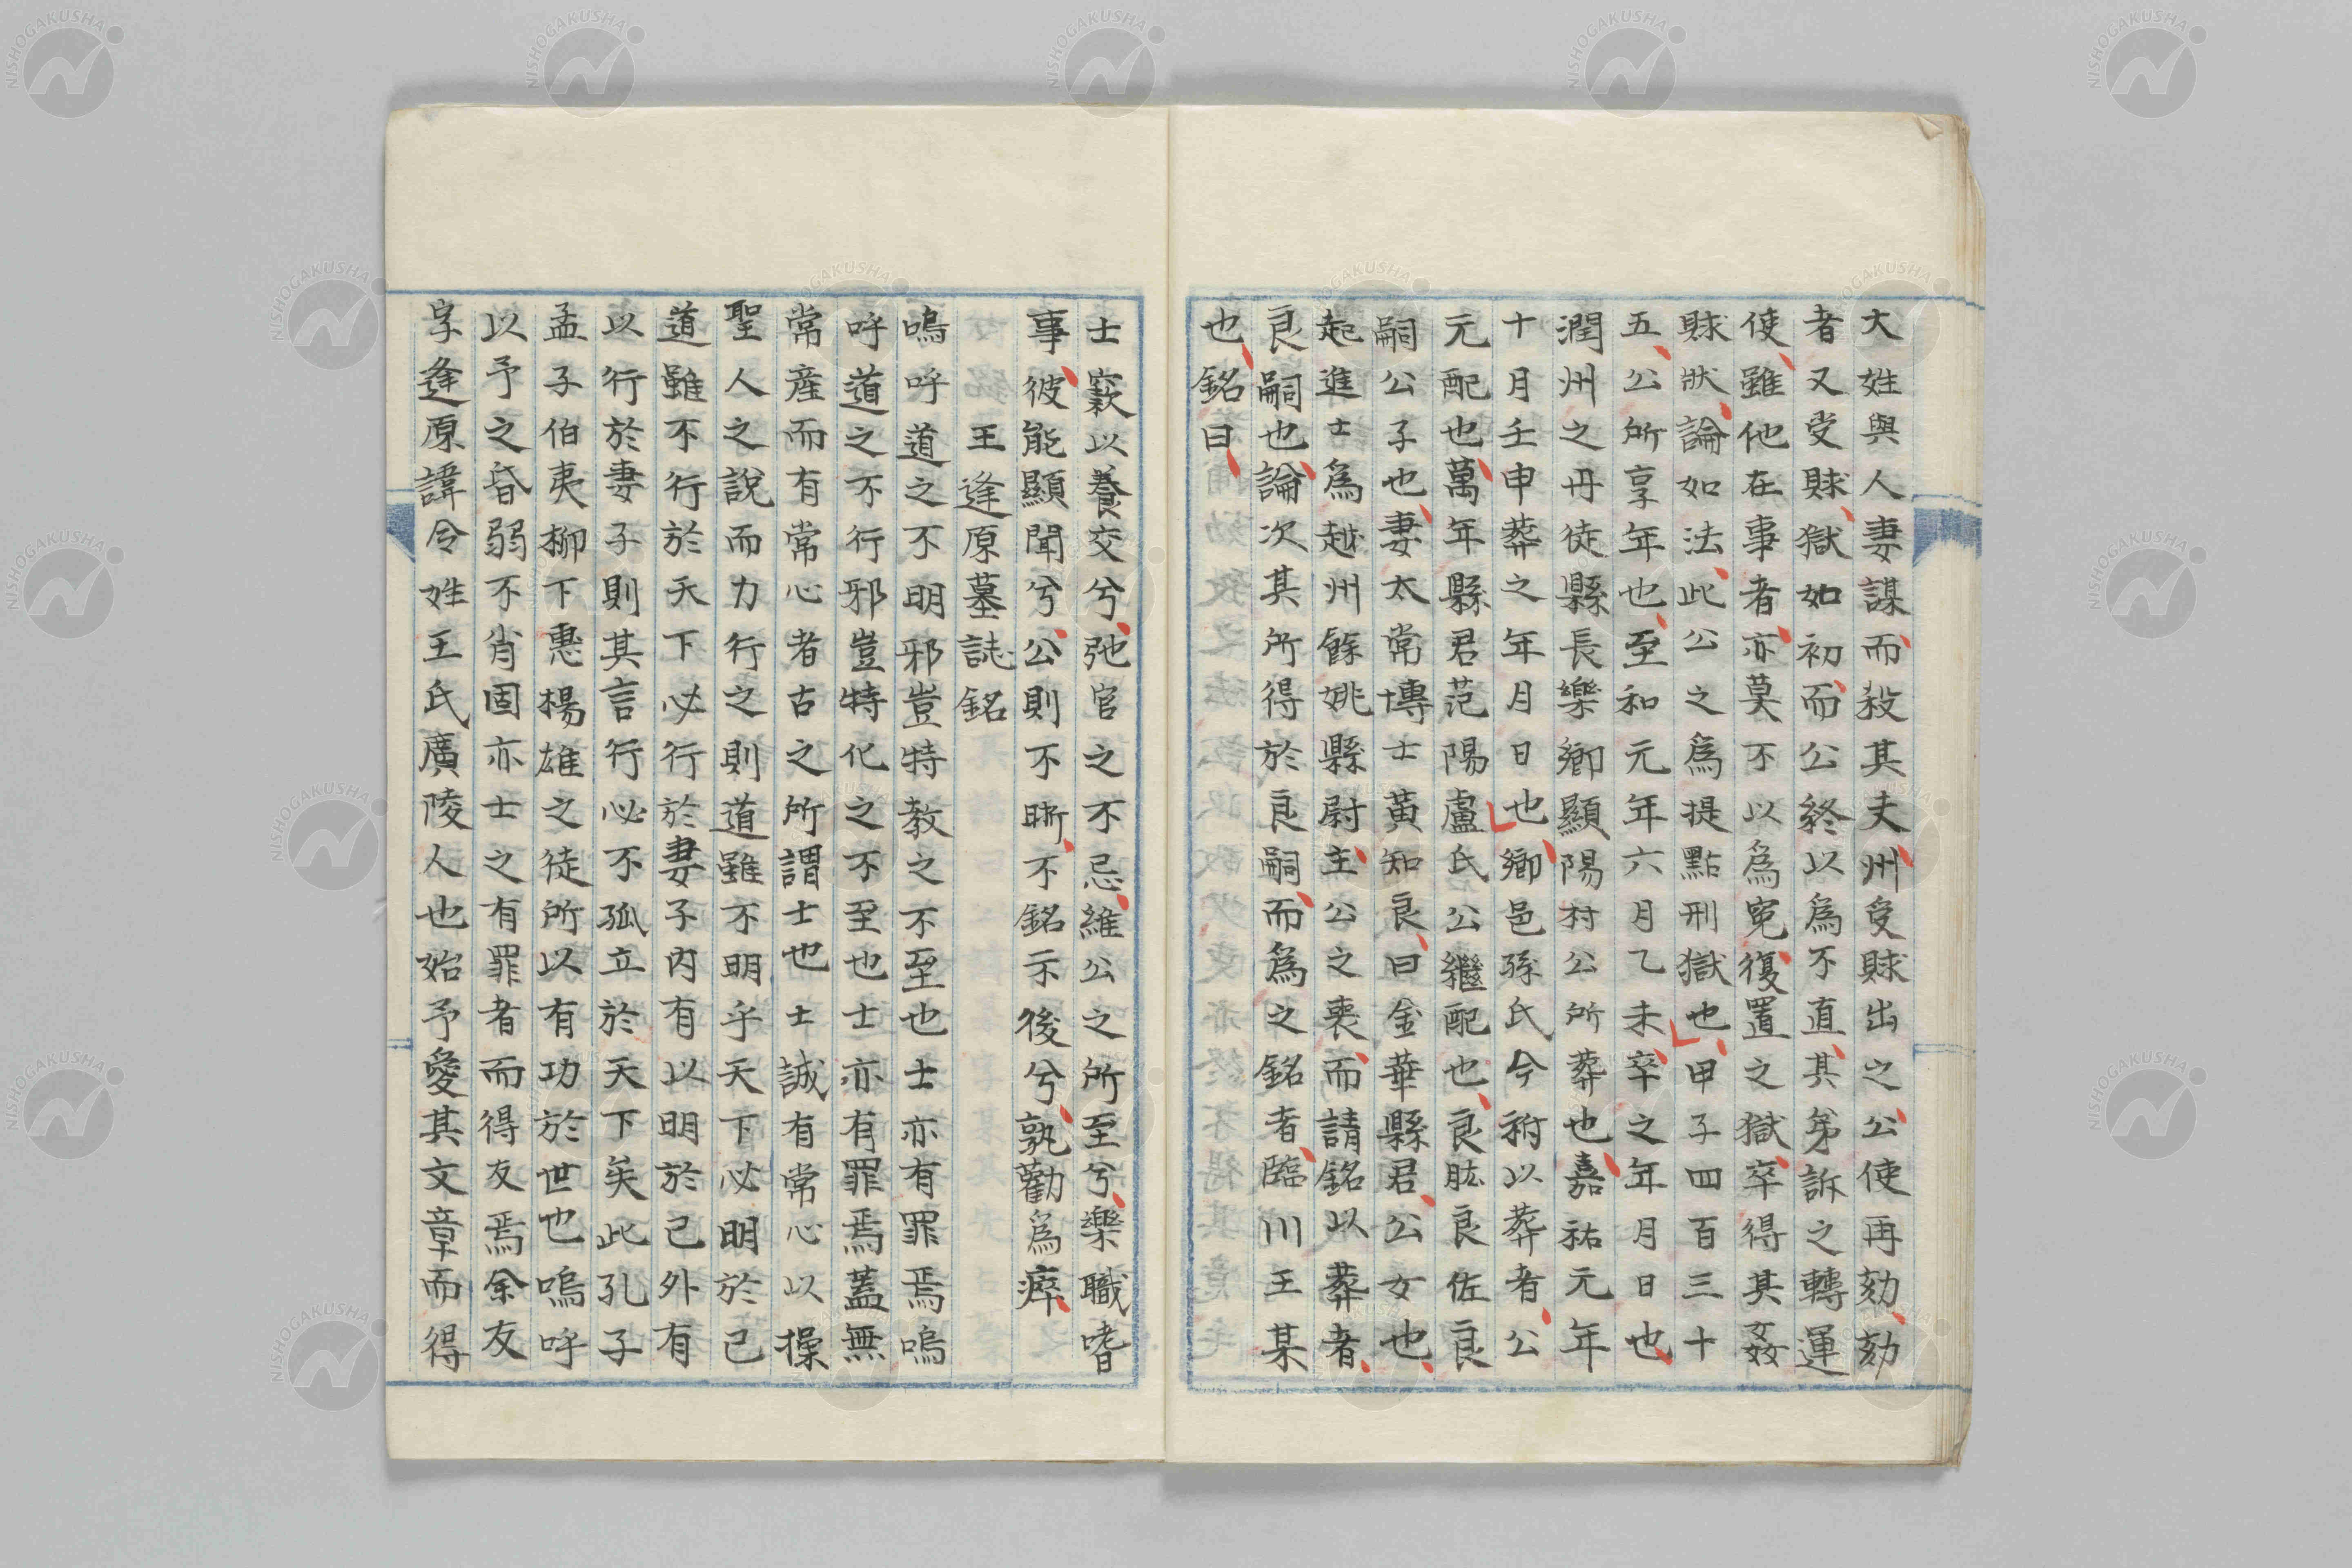 大姓與人妻謀而殺其夫州受賕出之公使再劾劾
者又受賕獄如初而公終以爲不直其弟訴之轉運
使雖他在事者亦莫不以爲寃復置之獄卒得其姦
賕狀論如法此公之爲提點刑獄也甲子四百三十
五公所享年也至和元年六月乙未卒之年月日也
潤州之丹徒縣長樂鄉顯陽村公所葬也嘉祐元年
十月壬申葬之年月日也鄉邑孫氏今祔以葬者公
元配也萬年縣君范陽盧氏公繼配也良肱良佐良
嗣公子也妻太常博士黃知良曰金華縣君公女也
起進士爲越州餘姚縣尉主公之喪而請銘以葬者
良嗣也論次其所得於良嗣而爲之銘者臨川王某
也銘曰
士窾以養交兮弛官之不忌維公之所至兮樂職嗜
事彼能顯聞兮公則不晰不銘示後兮孰勸爲瘁
王逢原墓誌銘
嗚呼道之不明邪豈特教之不至也士亦有罪焉嗚
呼道之不行邪豈特化之不至也士亦有罪焉蓋無
常産而有常心者古之所謂士也士誠有常心以操
聖人之說而力行之則道雖不明乎天下必明於己
道雖不行於天下必行於妻子內有以明於己外有
以行於妻子則其言行必不孤立於天下矣此孔子
孟子伯夷柳下惠楊雄之徒所以有功於世也嗚呼
以予之昏弱不肖固亦士之有罪者而得友焉余友
字逢原諱令姓王氏廣陵人也始予愛其文章而得
NISHOGAKUSHA